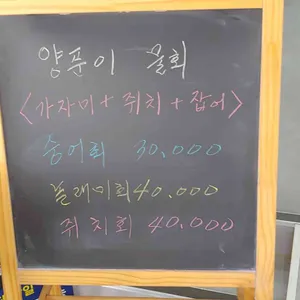 양푼이 물회
<가자미+쥐치+잡어>
숭어회 30,000
놀래미회 40,000
쥐치회 40,000